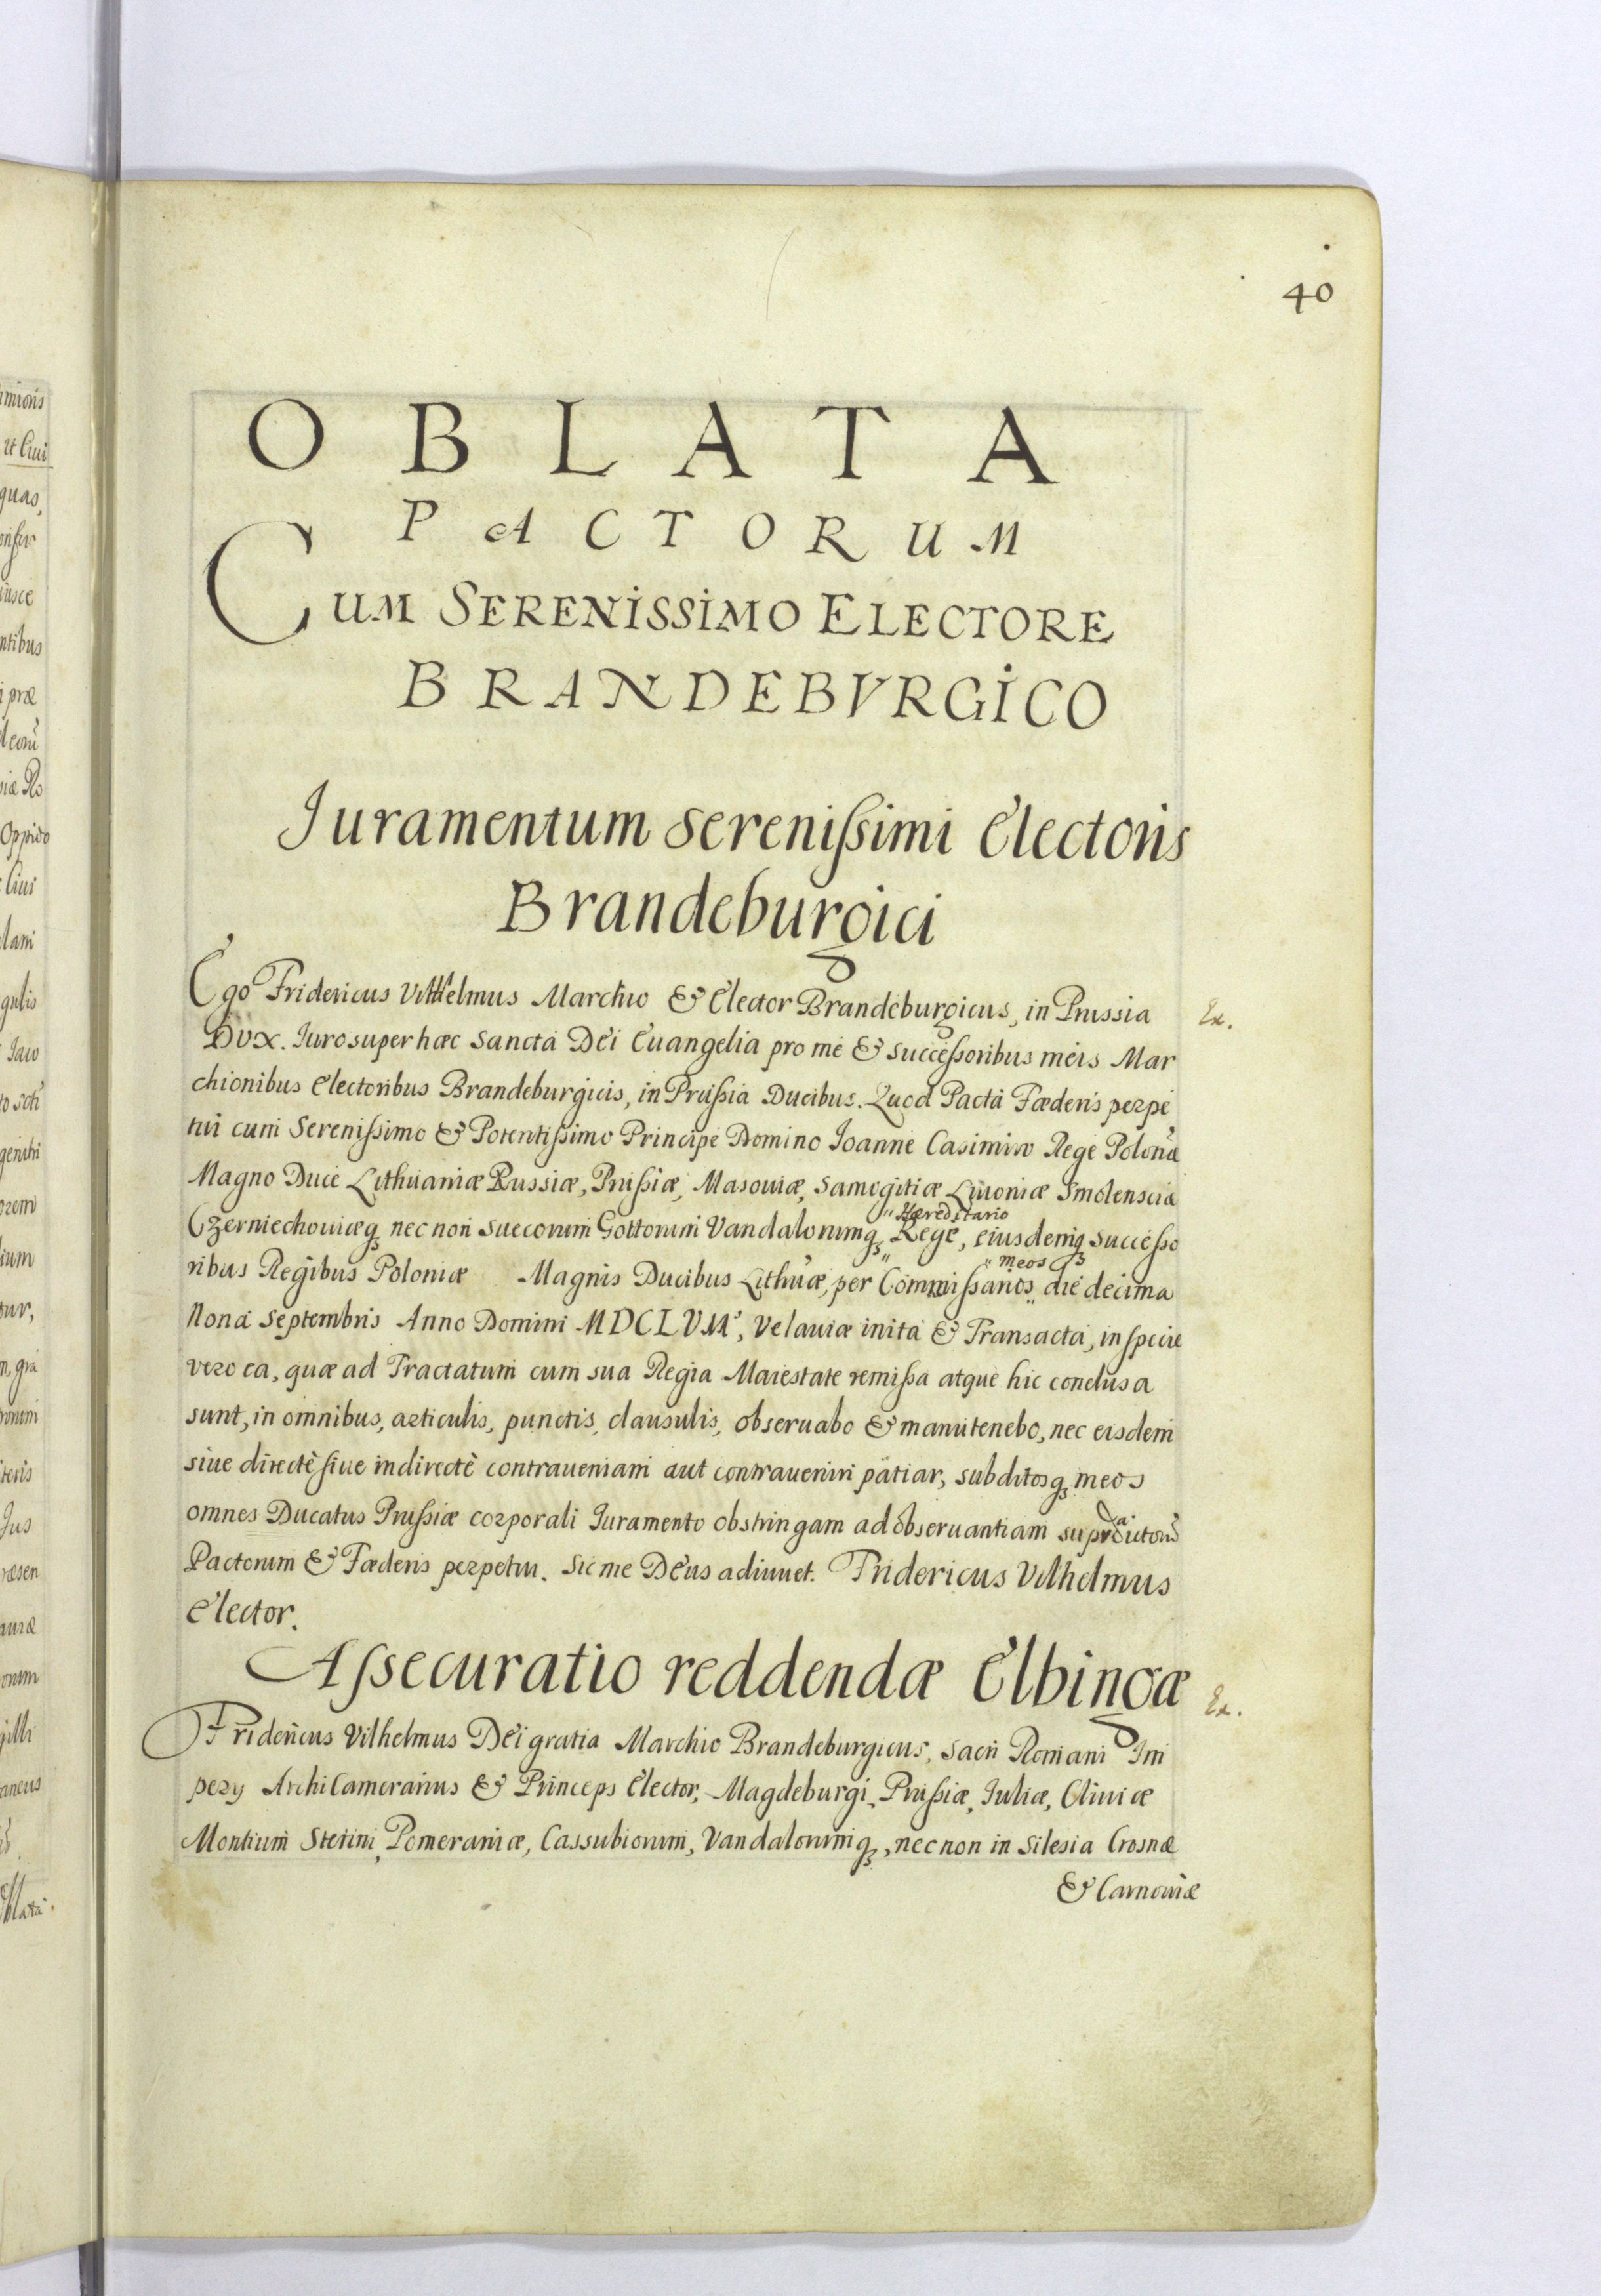 40
OBLATA
PACTORUM
CUM SERENISSIMO ELECTORE
BRANDEBVRGICO
Iuramentum Serenißimi Electoris
Brandeburgici
Ego Fridericus Vilhelmus Marchio & Elector Brandeburgicus, in Prussia
Ex.
Dux. Iuro super hæc Sancta Dei Euangelia pro me & Succeßoribus meis Mar
chionibus Electoribus Brandeburgicis, in Prußia Ducibus. Quod Pacta Fæderis perpe
tui cum Serenißimo & Potentißimo Principe Domino Ioanne Casimiro Rege Poloniæ
Magno Duce Lithuaniæ Russiæ, Prußiæ, Masouiæ, Samogitiæ Liuoniæ Smolensciæ
Hæreditario
Czerniechouiæq nec non Suecorum Gottorum Vandalorumq Rege, eiusdemq Succeßo
meos
ribus Regibus Poloniæ Magnis Ducibus Lithuæ, per Commißarios die decima
Nona Septembris Anno Domini Velauiæ inita & Transacta, in specie
vero ea, quæ ad Tractatum cum sua Regia Maiestate remißa atque hic conclusa
sunt, in omnibus, articulis, punctis, clausulis, obseruabo & manutenebo, nec eisdem
siue directè siue indirectè contraueniam aut contraueniri patiar, subditosq meos
omnes Ducatus Prußiæ corporali Iuramento obstringam ad obseruantiam
Pactorum & Fæderis perpetui. Sic me Deus adiuuet. Fridericus Vilhelmus
Elector.
Aßecuratio reddendæ Elbingæ
Ex.
Fridericus Vilhelmus Dei gratia Marchio Brandeburgicus, Sacri Romani Im
pery Archi Camerarius & Princeps Elector, Magdeburgi, Prußiæ, Iuliæ, Cliuiæ
Montium Stetini, Pomeraniæ, Cassubiorum, Vandalorumq, nec non in Silesia Crosnæ
& Carnouiæ